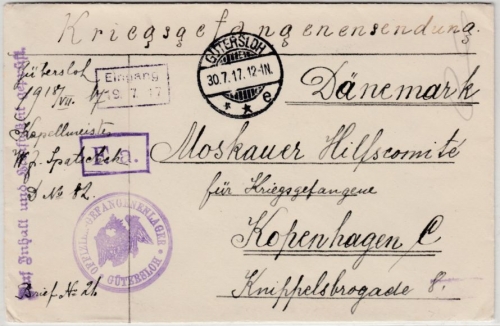 Kriegsgefangenensendung.
Gütersloh
Eingang
19. 7. 17
GÜTERSLOH
30.7.17.12-1N.
* * e
Dänemark
Kapellmeister
F. a.
Moskauer Hilfscomité
D No 82
für Kriegsgefangene
OFFIZIER-GEFANGENENLAGER
GÜTERSLOH
Kopenhagen C
Brief No 26
Knippelsbrogade 8.
Auf Inhalt und geprüft.